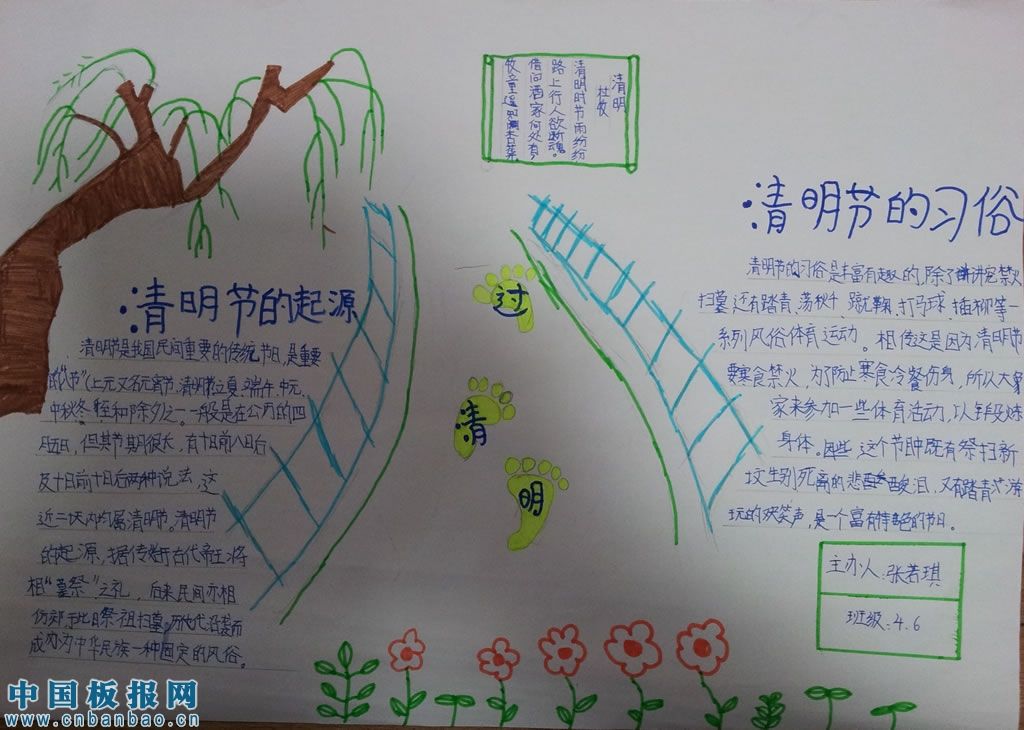 清明
杜牧
清明时节雨纷纷
路上行人欲断魂。
借问酒家何处有
牧童遥
清明节的起源
清明节是我国民间重要的传统节日,是重要
的“八节”(上元又名元宵节、清明节、立夏、端午、中元、
中秋、冬至和除夕)之一。一般是在公历的四
月五日,但其节期很长,有十日前八日后
及十日前十日后两种说法,这
近二十天内均属清明节。清明节
的起源,据传始于古代帝王将
相“墓祭”之礼,后来民间亦相
仿效,于此日祭祖扫墓,历代沿袭而
成为中华民族一种固定的风俗。
过
清
明
清明节的习俗
清明节的习俗是丰富有趣的,除了讲究禁火
扫墓,还有踏青、荡秋千、蹴鞠、打马球、插柳等一
系列风俗体育运动。相传这是因为清明节
要寒食禁火,为了防止寒食冷餐伤身,所以大家
家来参加一些体育活动,以锻炼
身体。因此,这个节日中既有祭扫新
坟生别死离的悲酸泪,又有踏青游
玩的欢笑声,是一个富有特色的节日。
主办人:张若琪
班级:4.6
中国板报网
www.cnbanbao.cn